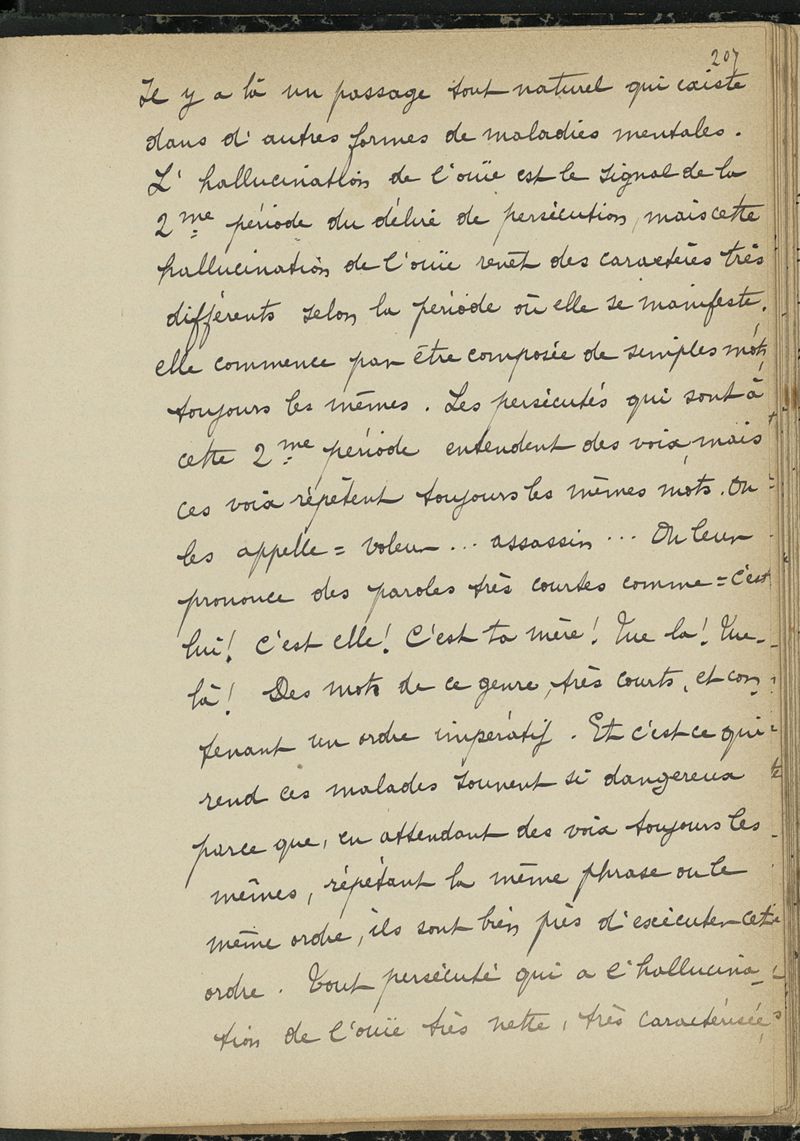 207
Il y a là un passage tout naturel qui existe
dans d'autres formes de maladies mentales.
L'hallucination de l'ouïe est le signal de la
2me période du délire de persécution, mais cette
hallucination de l'ouïe revêt des caractères très
différents selon la période où elle se manifeste.
elle commence par être composée de simples mots,
toujours les mêmes. Les persécutés qui sont à
cette 2me période entendent des voix, mais
ces voix répètent toujours les mêmes mots. On
les appelle = voleur ... assassin ... On leur
prononce des paroles très courtes comme = C'est
lui! C'est elle! C'est ta mère! Tue la! Tue-
là! Des mots de ce genre, très courts, et con
tenant un ordre impératif. Et c'est ce qui
rend ces malades souvent si dangereux
parce que, en attendant des voix toujours les
mêmes, répétant la même phrase ou le
même ordre, ils sont bien près d'exécuter cet
ordre. Tout persécuté qui a l'hallucina-
tion de l'ouïe très nette, très caractérisée,